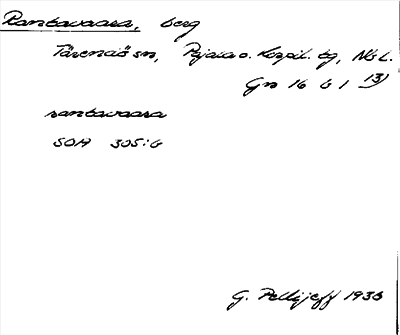 Rantavaara, berg
Tärendö sn, Pajala o. Korpil. tg, Nb l.
Gn 16 b 1 13)
rantavaara
SOA 305:6
G. Pellijeff 1936